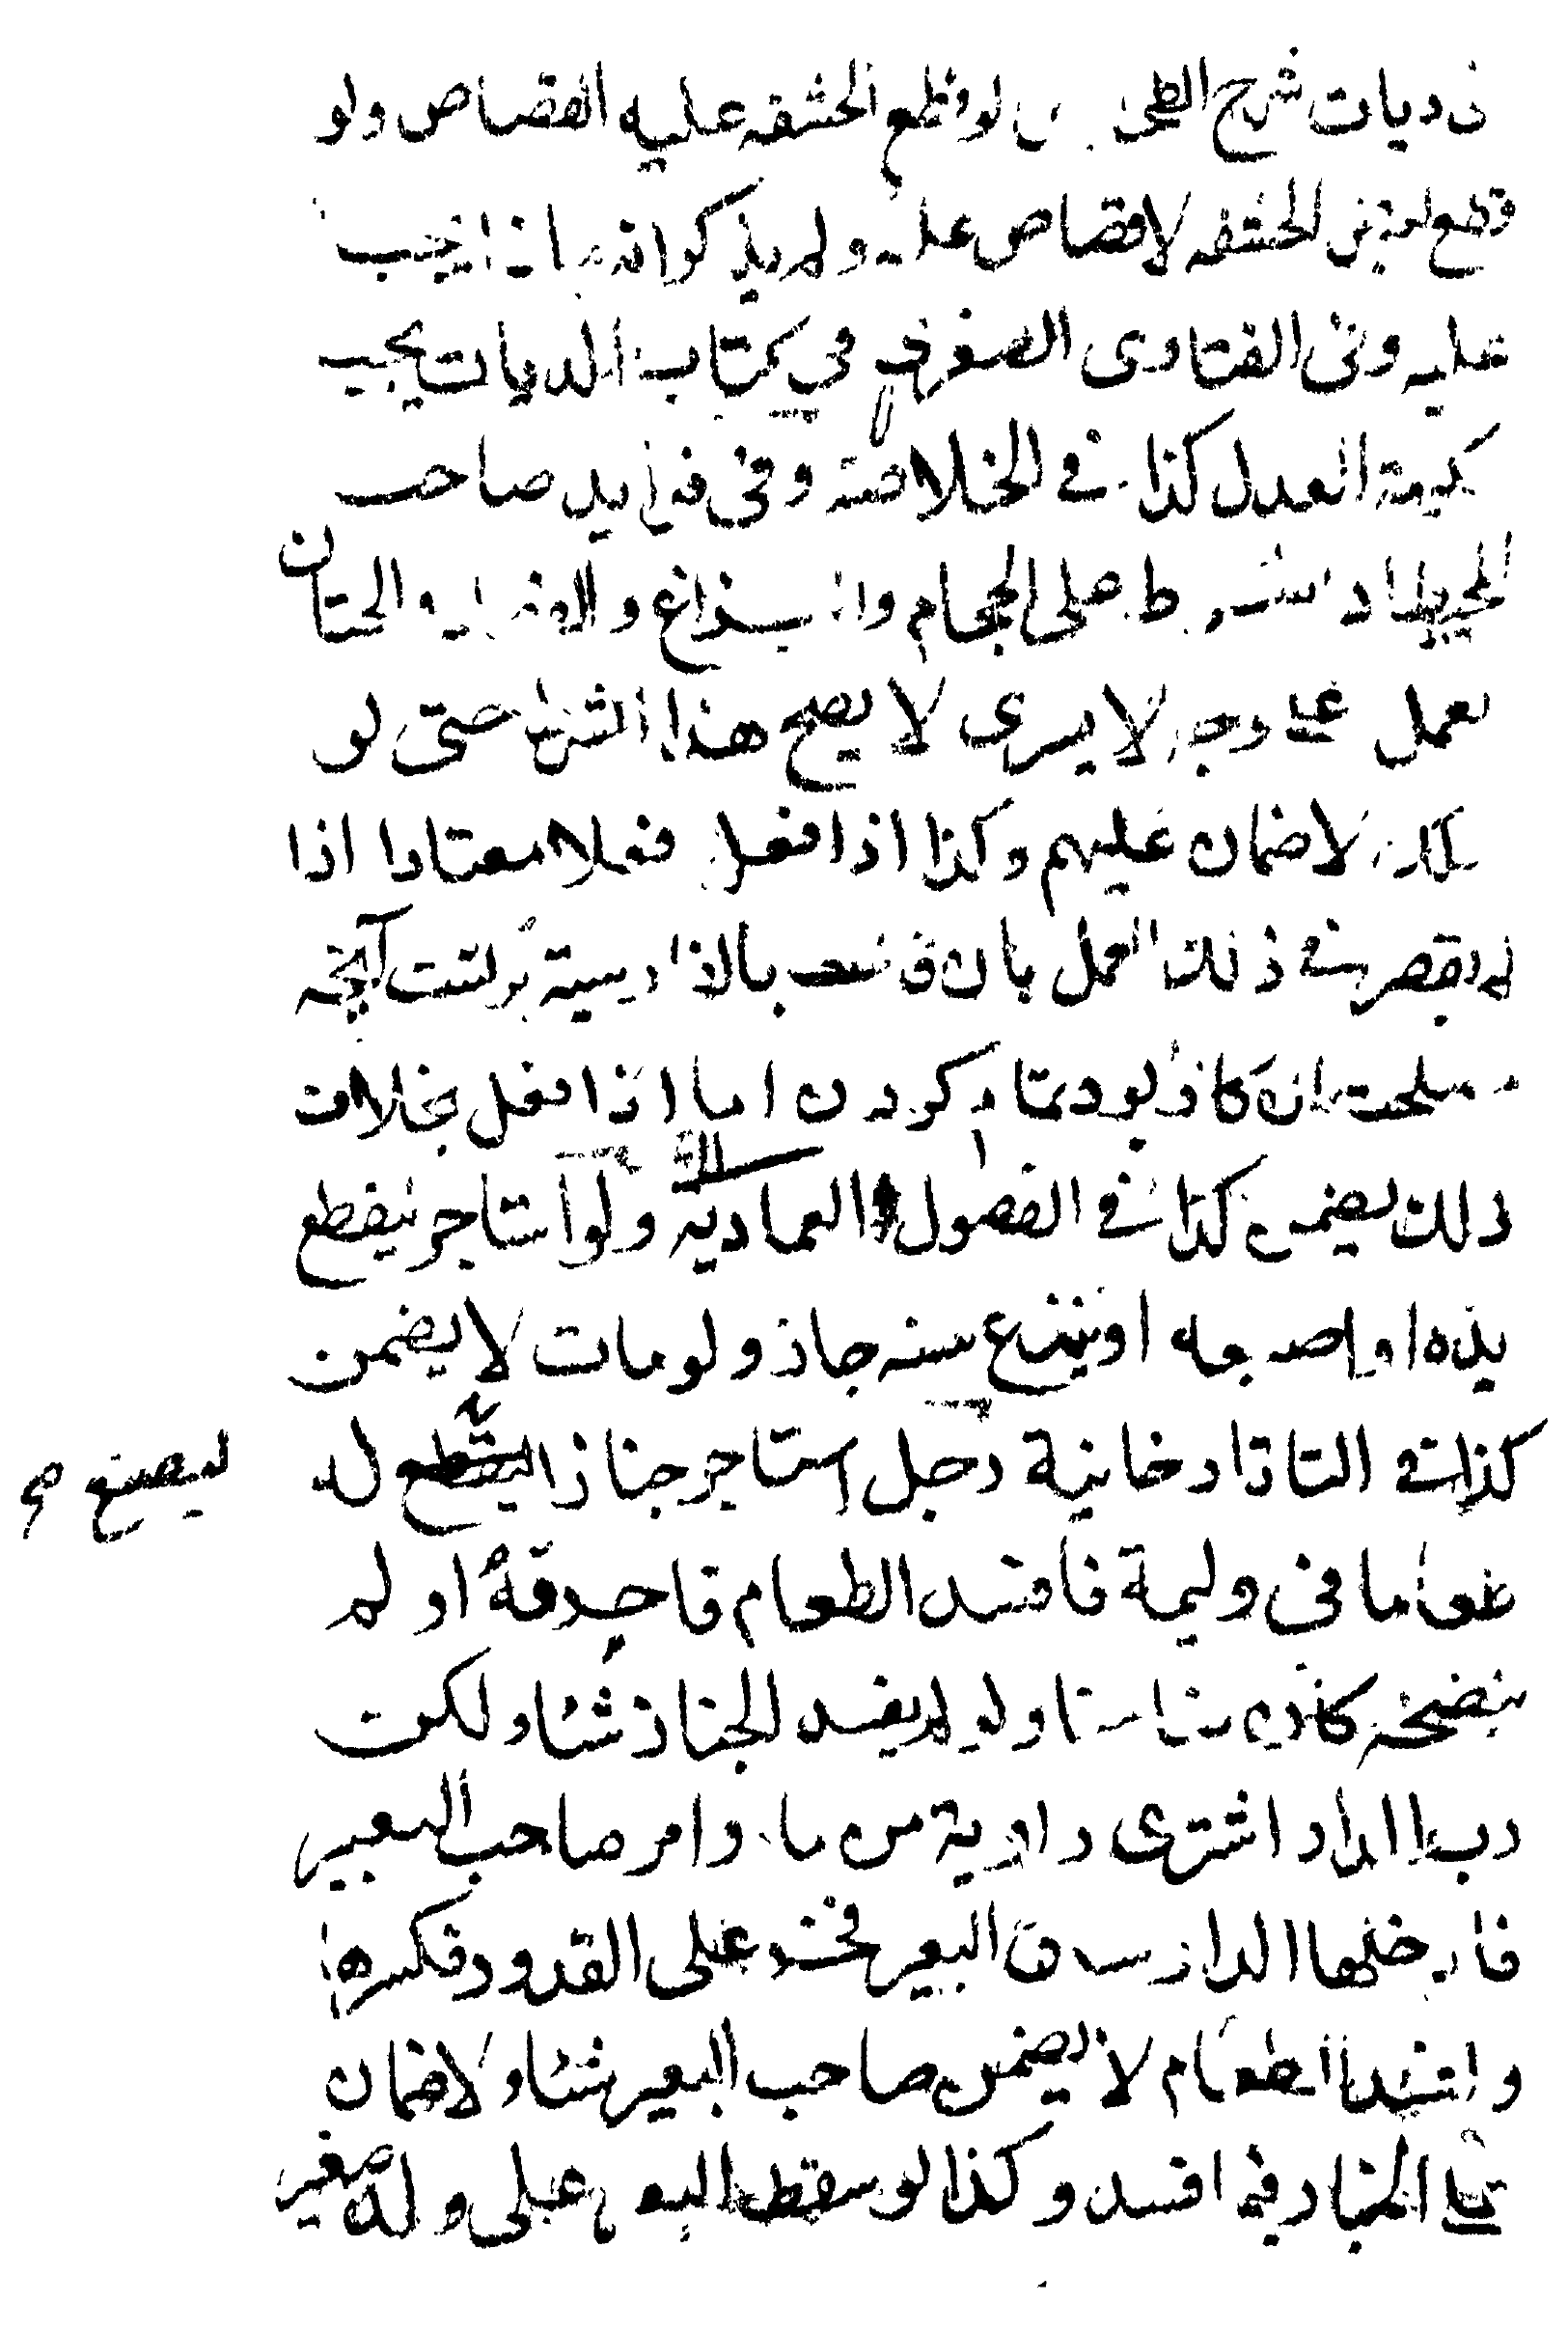 في ديات شرح الطحاوي لو قطع الحشفه عليه القصاص ولو
قطع بعض الحشفه لا قصاص عليه ولم يذكر انه ماذا يجب
عليه وفى الفتاوى الصغرى في كتاب الديات يجب
حكومة العدل كذا في الخلاصة وفى فوايد صاحب
المحيط اذا شرط على الحجام والبزاغ والفصاد والختان
العمل على وجه لا يسرى لا يصح هذا الشرط حتى لو
هلك لا ضمان عليهم وكذا اذا فعل فعلا معتادا اذا
لم يقصر في ذلك العمل بان بالفارسية آنچه
مصلحت آن كار بود تمام كردن اما اذا فعل بخلاف
ذلك يضمن كذا في الفصول العمادية ولو استاجر ليقطع
يده او اصبعه او ينزع سنه جاز ولو مات لا يضمن
كذا في التاتارخانية رجل استاجر خبازا ليقطع له
ليصنع صح
طعاما فى وليمة فافسد الطعام فاحرقه او لم
ينضجه كان ضامنا ولو لم يفسد الخباز شئا ولكن
رب الدار اشترى راوية من ماء وامر صاحب البعير
فادخلها الدار ساق البعير فخر على القدور فكسرها
وافسد الطعام لا يضمن صاحب البعير شئا ولا ضمان
على الخباز فيما افسد وكذا لو سقط البعير على ولد صغير